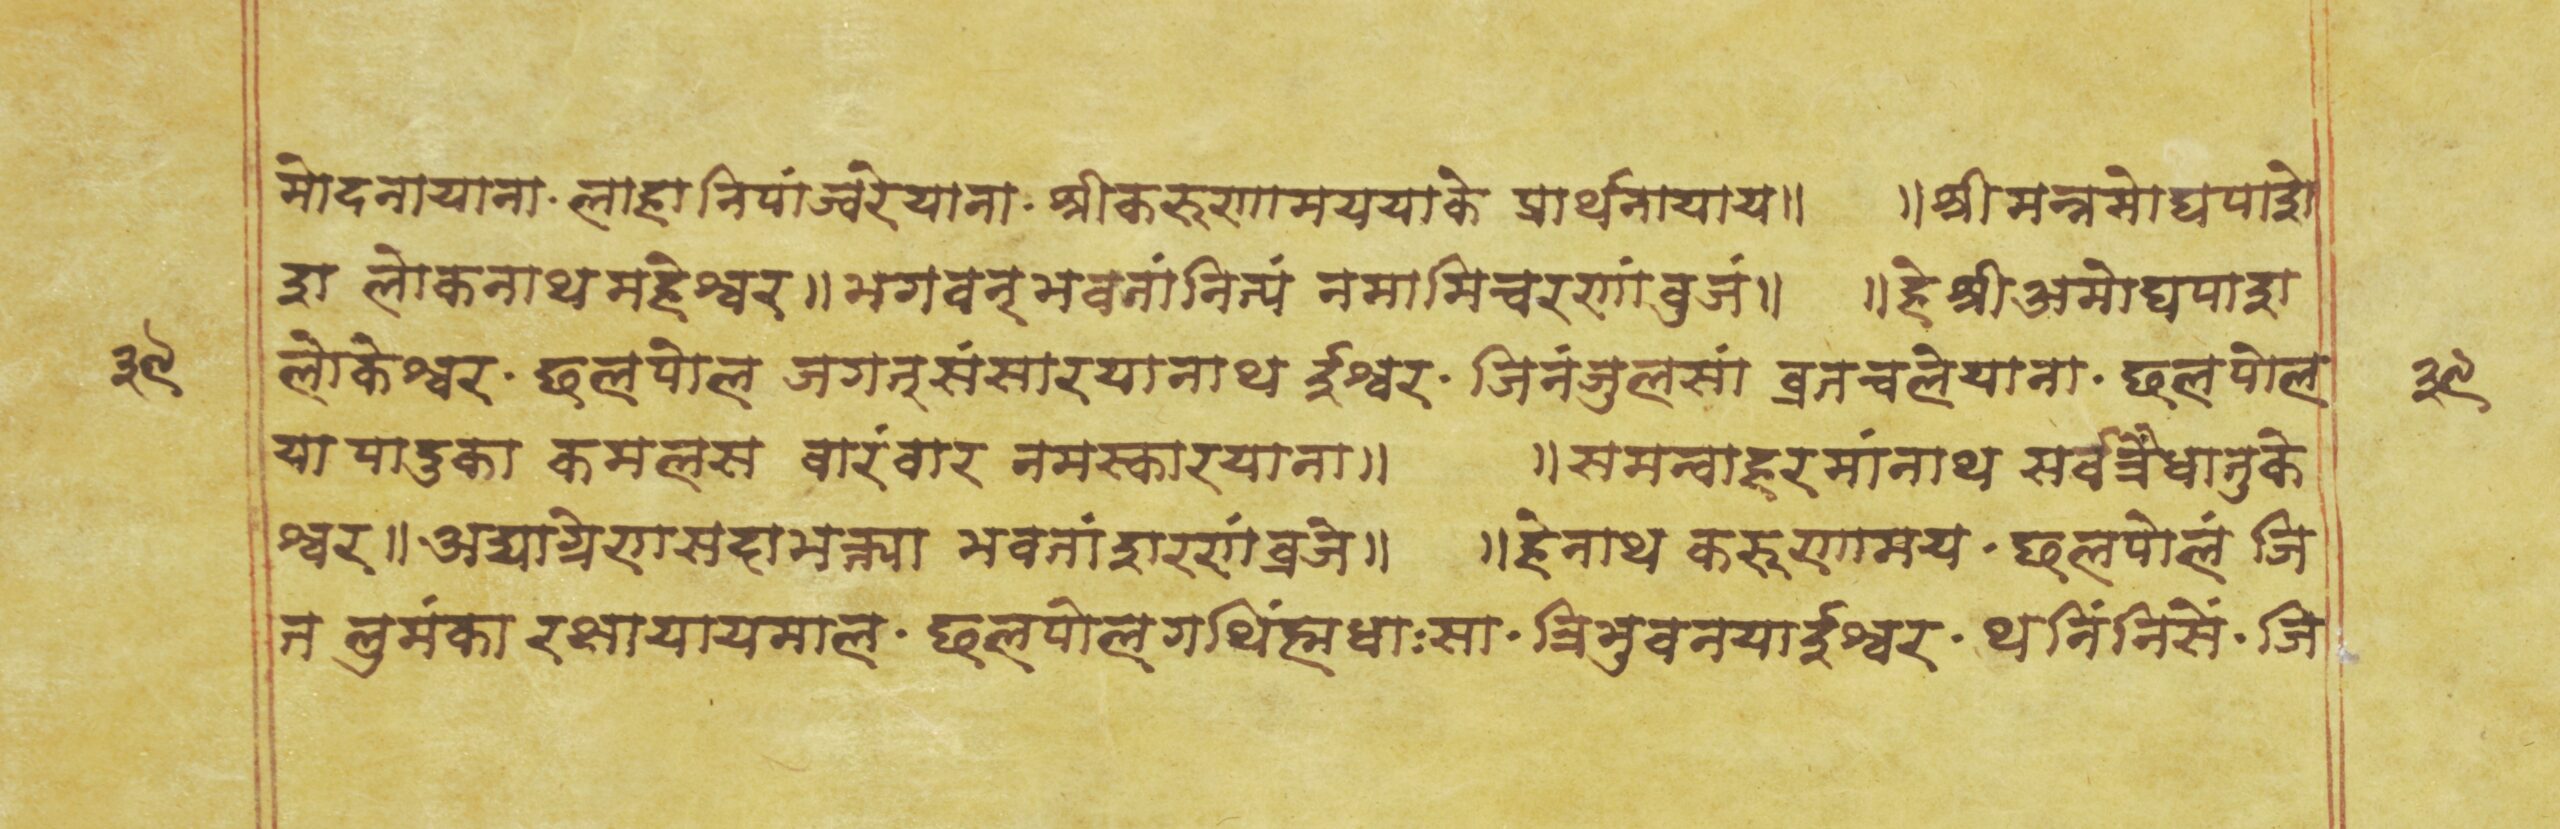 मोदनायाना· लाहानिपांज्वरेयाना· श्रीकरुणामययाके प्रार्थनायाय॥ ॥श्रीमन्नमोघपाशे
श लोकनाथमहेश्वर॥भगवन्भवतांनित्यं नमामिचरणांवुजं॥ ॥हेश्रीअमोघपाश
३९ लोकेश्वर· छलपोल जगत्संसारयानाथ ईश्वर· जिनंजुलसां व्रतचलेयाना· छलपोल ३९
यापादुका कमलस वारंवार नमस्कारयाना॥ ॥समन्वाहरमांनाथ सर्वत्रैधातुके
श्वर॥अद्याग्रेणसदाभक्त्या भवतांशरणांव्रजे॥ ॥हेनाथ करुणामय· छलपोलं जि
त लुमंका रक्षायायमाल· छलपोलगथिंह्मधाःसा· त्रिभुवनयाईश्वर· थनिंनिसें· जि